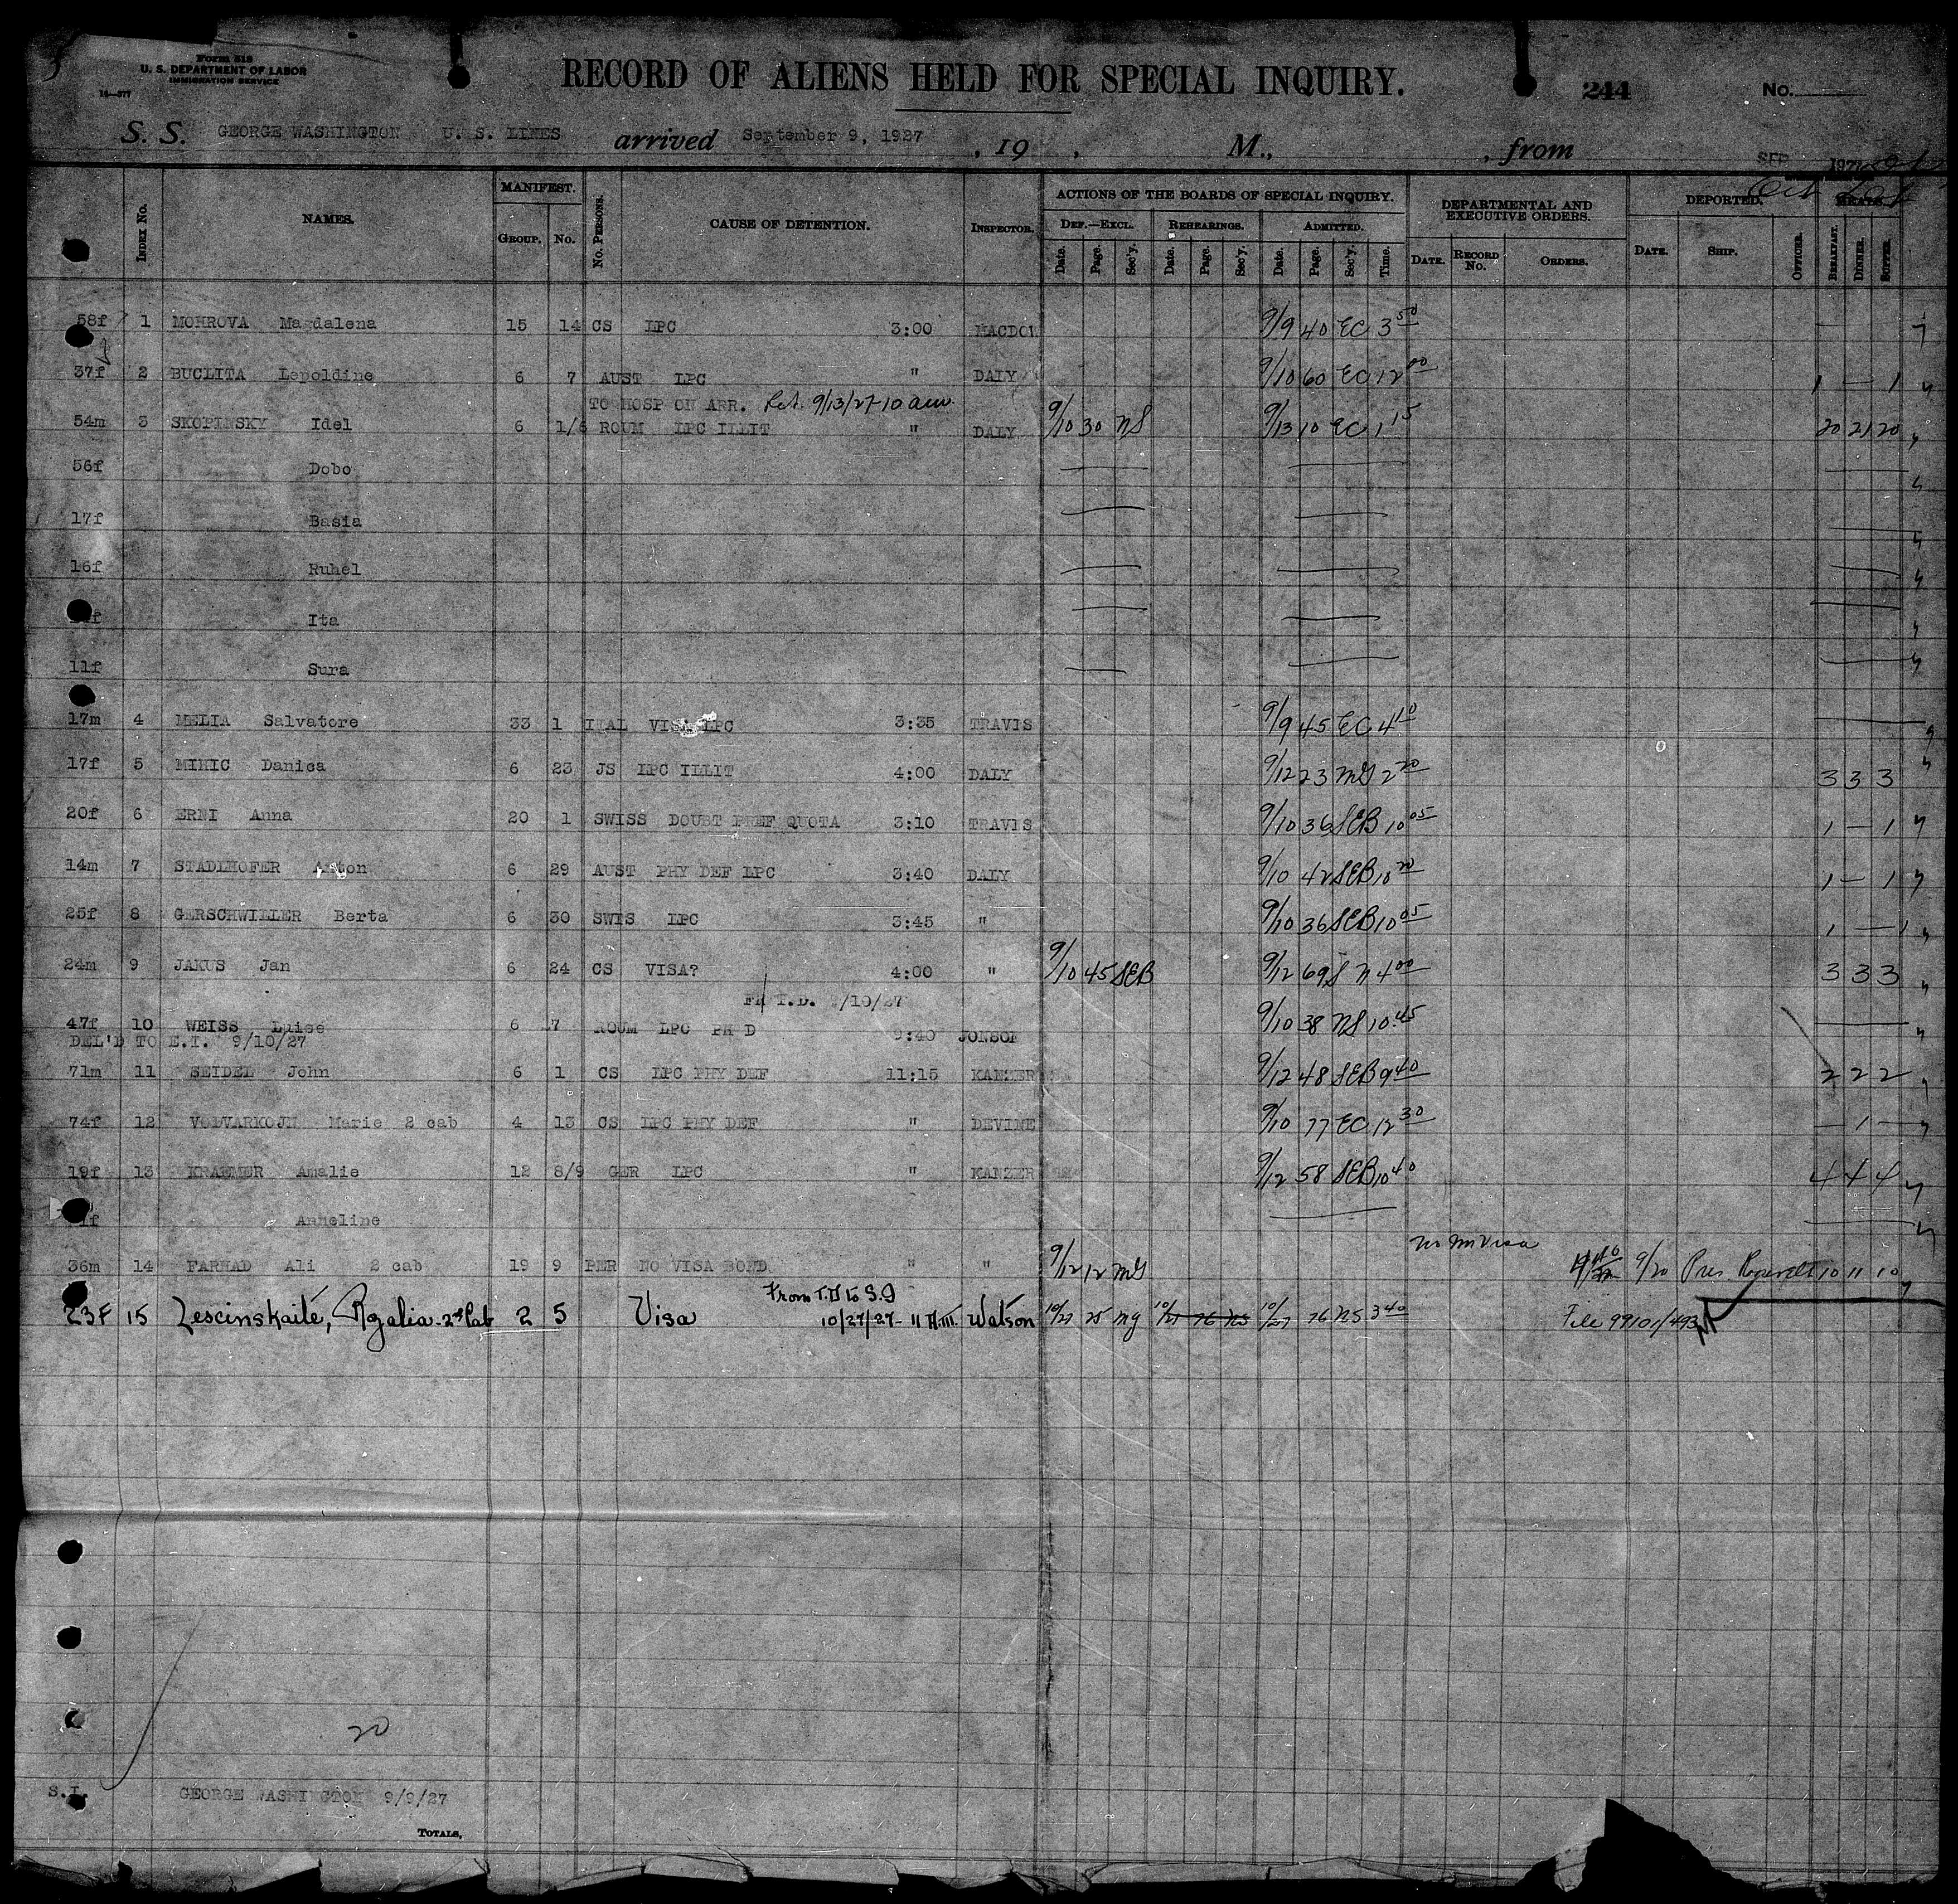 Form 518
U. S. DEPARTMENT OF LABOR
IMMIGRATION SERVICE
14—377
RECORD OF ALIENS HELD FOR SPECIAL INQUIRY.
244
No.
S. S. GEORGE WASHINGTON U. S. LINES arrived September 9, 1927, 19 , M., , from
SEP
Index No. NAMES. MANIFEST. Group. No. No. Persons. CAUSE OF DETENTION. Inspector. ACTIONS OF THE BOARDS OF SPECIAL INQUIRY. DEPARTMENTAL AND EXECUTIVE ORDERS. DEPORTED. MEALS.
Def.—Excl. Rehearings. Admitted.
Date. Page. Sec'y. Date. Page. Sec'y. Date. Page. Sec'y. Time. Date. Record No. Orders. Date. Ship. Officer. Breakfast. Dinner. Supper.
58f 1 MOHROVA Magdalena 15 14 CS LPC 3:00 MACDO 9/9 40 EC 3 50
37f 2 BUCLITA Lepoldine 6 7 AUST LPC " DALY 9/10 60 EC 12 00 1 — 1
TO HOSP ON ARR. Ret. 9/13/27-10 am
54m 3 SKOPINSKY Idel 6 1/6 ROUM LPC ILLIT " DALY 9/10 30 NS 9/13 10 EC 1 15 20 21 20
56f Dobo
17f Basia
16f Ruhel
Ita
11f Sura
17m 4 MELIA Salvatore 33 1 ITAL VISA LPC 3:35 TRAVIS 9/9 45 EC 4 10
17f 5 MIHIC Danica 6 23 JS LPC ILLIT 4:00 DALY 9/12 23 MG 2 20 3 3 3
20f 6 ERNI Anna 20 1 SWISS DOUBT PREF QUOTA 3:10 TRAVIS 9/10 36 SEB 10 05 1 — 1
14m 7 STADLHOFER Anton 6 29 AUST PHY DEF LPC 3:40 DALY 9/10 42 SEB 10 20 1 — 1
25f 8 GERSCHWILLER Berta 6 30 SWIS LPC 3:45 " 9/10 36 SEB 10 05 1 — 1
24m 9 JAKUS Jan 6 24 CS VISA? 4:00 " 9/10 45 SEB 9/12 69 S N 4 00 3 3 3
FR T.D. 9/10/27
47f 10 WEISS Luise 6 7 ROUM LPC PH D 9:40 JONSON 9/10 38 NS 10 45
DEL'D TO E.I. 9/10/27
71m 11 SEIDEL John 6 1 CS LPC PHY DEF 11:15 KANZER 9/12 48 SEB 9 40 2 2 2
74f 12 VODVARKOJU Marie 2 cab 4 13 CS LPC PHY DEF " DEVINE 9/10 77 EC 12 30 — 1 —
19f 13 KRAEMER Amalie 12 8/9 GER LPC " KANZER 9/12 58 SEB 10 40 4 4 4
Anneline
no Visa
36m 14 FARHAD Ali 2 cab 19 9 PER NO VISA BOND " " 9/12 12 MG 9/20 Pres Roosevelt 10 11 10
From T.D to S.I
23F 15 Lescinskaitė, Agalia - 2nd Cab 2 5 Visa 10/27/27 - 11 A.M. Watson 10/27 25 mg 10/27 76 NS 10/27 76 NS 3 40 File 99101/493
20
S.I. GEORGE WASHINGTON 9/9/27
Totals,